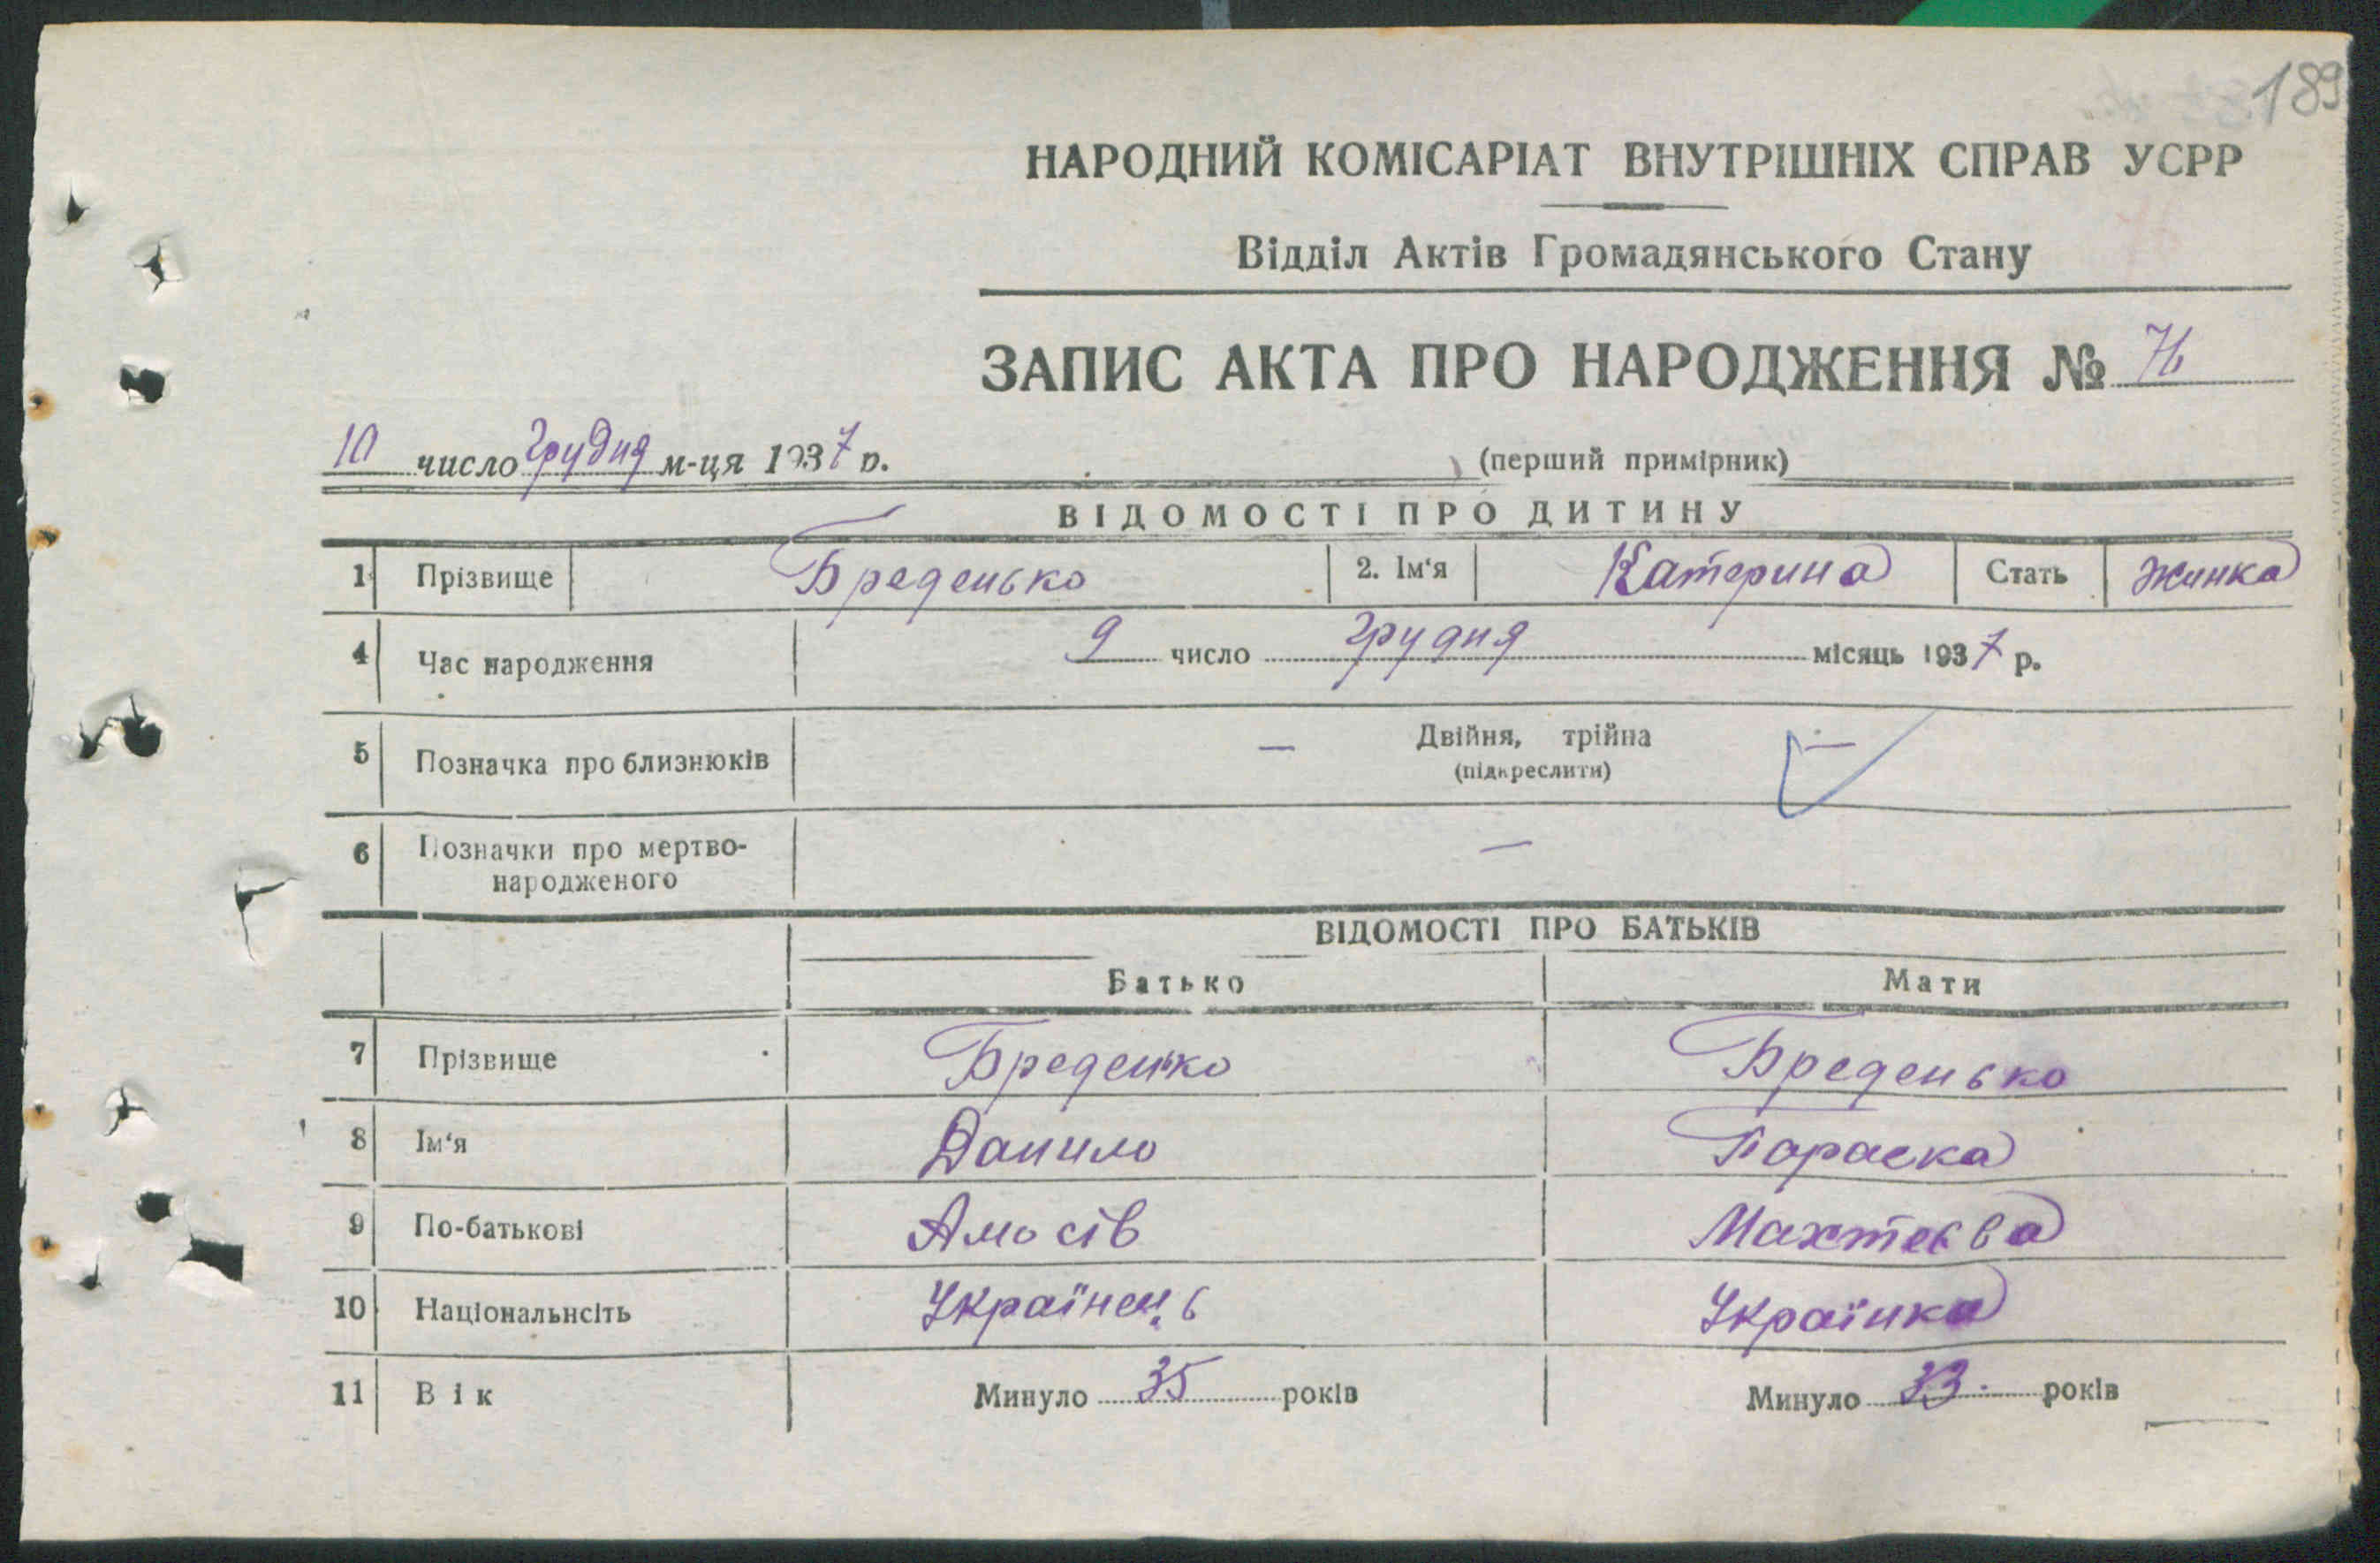 189
НАРОДНИЙ КОМІСАРІАТ ВНУТРІШНІХ СПРАВ УСРР
Відділ Актів Громадянського Стану
ЗАПИС АКТА ПРО НАРОДЖЕННЯ № 76
10 число грудня м-ця 1937 р. (перший примірник)
ВІДОМОСТІ ПРО ДИТИНУ
1 Прізвище Бреденько 2. Ім'я Катерина Стать Жинка
4 Час народження 9 число грудня місяць 1937 р.
5 Позначка про близнюків — Двійня, трійна —
(підкреслити)
6 Позначки про мертво- —
народженого
ВІДОМОСТІ ПРО БАТЬКІВ
Батько Мати
7 Прізвище Бреденько Бреденько
8 Ім'я Данило Параска
9 По-батькові Амосів Махтеєва
10 Національнсіть Українець Українка
11 Вік Минуло 35 років Минуло 33 років